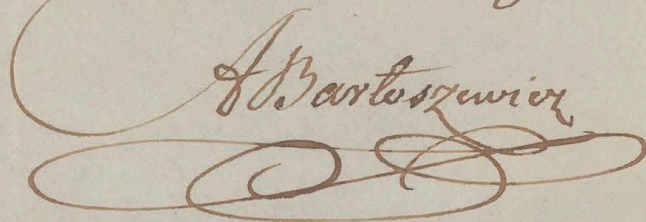 A Bartoszewicz